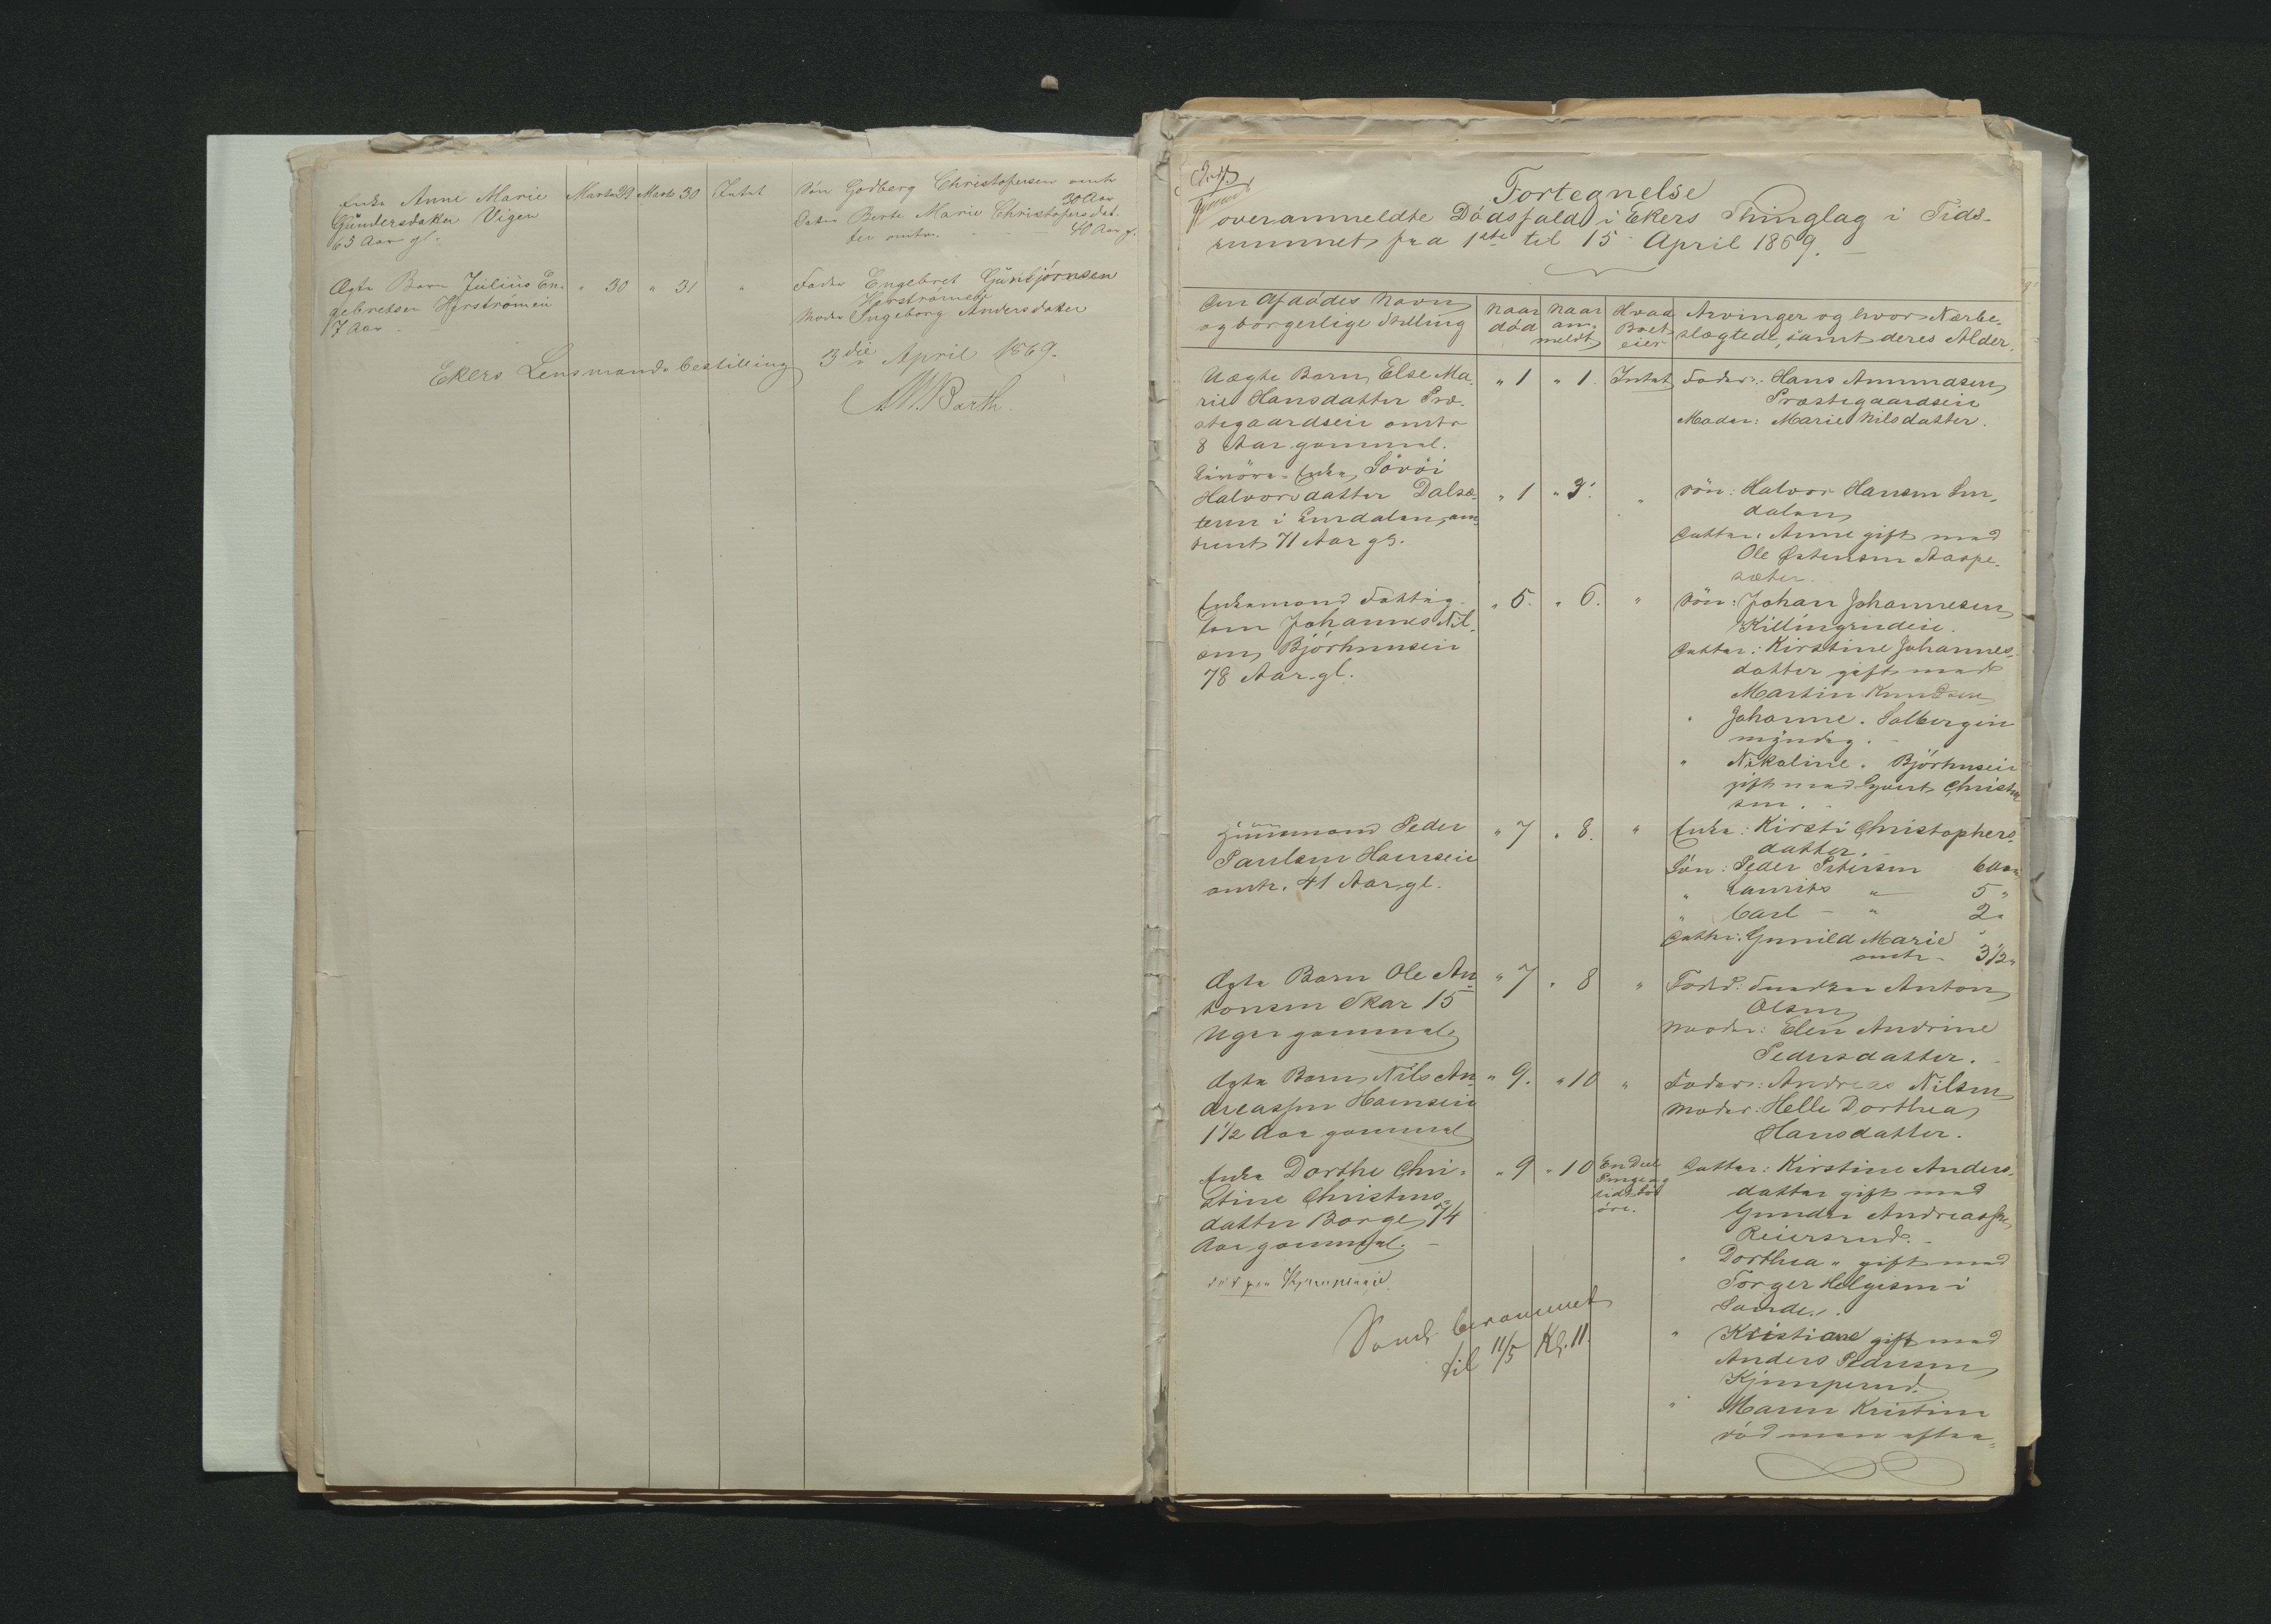 Enke Anne Marie
Gundersdatter Vigen
63 Aar gl.
Marts 29
Marts 30
Intet
Søn Godberg Christofersen omtr
30 Aar
Datter Berte Marie Christofersdat-
ter omtr. 40 Aar g.
Ægte Barn Julius En-
gebretsen Hørstrømeie
7 Aar
" 30
" 31
"
Fader Engebret Gunbjörnsen
Hørstrømeie
Moder Ingeborg Andersdatter
Ekers Lensmandsbestilling 3die April 1869.
Barth.
Fortegnelse
over anmeldte Dödsfald i Ekers Thinglag i Tids-
rummet fra 1ste til 15 April 1869.
Den Afdödes Navn
og borgerlige Stilling
Naar
död
Naar
an-
meldt
Hvad
Boet
eier
Arvinger og hvor Nærbe-
slægtede, samt deres Alder.
Uægte Barn Else Ma-
rie Hansdatter Præ-
stegaardseie omtr
8 Aar gammel.
" 1
" 1
Intet
Fader: Hans Amundsen
Præstegaardseie
Moder: Marie Nilsdatter.
Enke Sövöi
Halvorsdatter Dalsæ-
teren i Eurdalen, om-
trent 71 Aar gl.
" 1
" 3.
"
Sön: Halvor Hansen Eur-
dalen
Datter: Anne gift med
Ole Østensen Aaspe-
sæter.
Enkemand Fattig-
lem Johannes Nil-
sen Björhuuseie
78 Aar gl.
" 5.
" 6.
"
Sön: Johan Johannesen
Killingrudeie.
Datter: Kirstine Johannes-
datter gift med
Martin Knudsen
" Johanne " Solbergeie
myndig.
" Nikoline " Björhuuseie
gift med Syvert Christen
sen.
Huusmand Peder
Paulsen Hamseie
omtr. 41 Aar gl.
" 7
" 8.
"
Enke: Kirsti Christophers-
datter.
Sön: Peder Petersen 6 Aar
" Laurits " 5 "
" Carl " 2 "
Datter: Gunild Marie "
omtr. 3 1/2 "
Ægte Barn Ole An-
tonsen Skar 15
Uger gammel
" 7
" 8
"
Anton
Olsen
Moder: Elen Andrine
Pedersdatter.
Ægte Barn Nils An-
dreassen Hamseie
1 1/2 Aar gammel
" 9.
" 10
"
Fader: Andreas Nilsen
Moder: Helle Dorthea
Hansdatter.
Enke Dorthe Chri-
stine Christens-
datter Borge 74
Aar gammel.
" 9
" 10
En Deel
Penge og
Lidt Lös
öre.
Datter: Kirstine Anders-
datter gift med
Gunder Andreassen
Reiersrud.
" Dorthea " gift med
Torger Helgesen i
Sande.
" Kristiane gift med
Anders Pedersen
Kjemperud.
" Maren Kristine
död men efter-
död paa
Saml. berammet
til 11/5 Kl. 11.